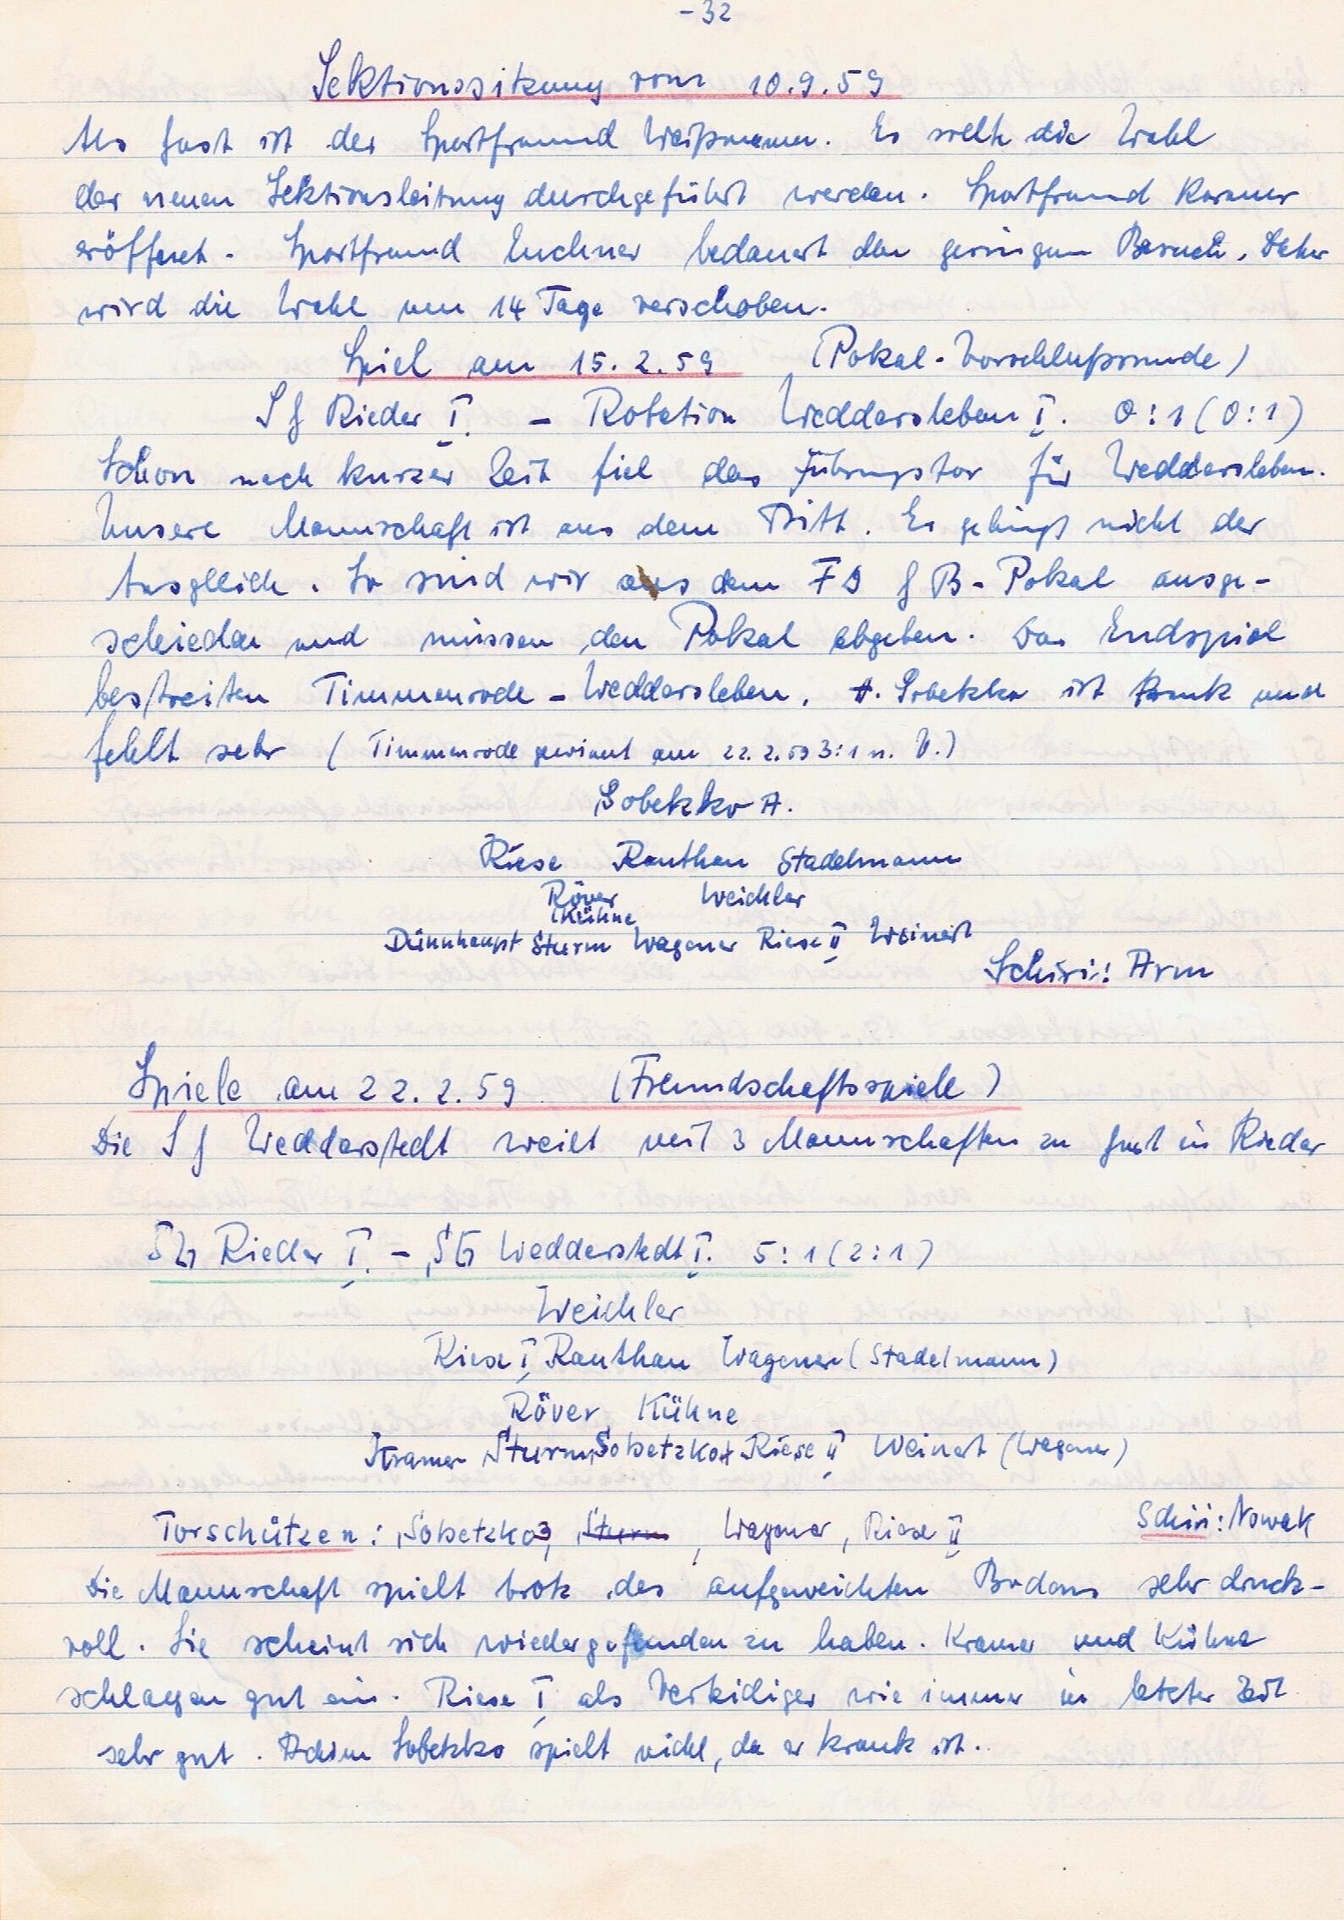 - 32
Sektionssitzung vom 10.9.59
Als Gast ist der Sportfreund Weißmann. Es sollte die Wahl
der neuen Sektionsleitung durchgeführt werden. Sportfreund Kramer
eröffnet. Sportfreund Euchner bedauert den geringen Besuch. Daher
wird die Wahl um 14 Tage verschoben.
Spiel am 15.2.59 (Pokal-Vorschlußrunde)
SG Rieder I. - Rotation Weddersleben I. 0:1 (0:1)
Schon nach kurzer Zeit fiel das Führungstor für Weddersleben.
Unsere Mannschaft ist aus dem Tritt. Es gelingt nicht der
Ausgleich. So sind wir aus dem FDGB-Pokal ausge-
schieden und müssen den Pokal abgeben. Das Endspiel
bestreiten Timmenrode - Weddersleben. A. Sobetzko ist krank und
fehlt sehr (Timmenrode gewinnt am 22.2.59 3:1 n. V.)
Sobetzko A.
Riese Rauthan Stadelmann
Röver Weichler
Kühne
Dünnhaupt Sturm Wagener Riese II Weinert
Schiri: Arm
Spiele am 22.2.59 (Freundschaftsspiele)
Die SG Wedderstedt weilt mit 3 Mannschaften zu Gast in Rieder
SG Rieder I. - SG Wedderstedt I. 5:1 (2:1)
Weichler
Riese I Rauthan Wagener (Stadelmann)
Röver Kühne
Kramer Sturm Sobetzko Riese II Weinert (Wagener)
Torschützen: Sobetzko 3, Sturm, Wagener, Riese II Schiri: Nowak
Die Mannschaft spielt trotz des aufgeweichten Bodens sehr druck-
voll. Sie scheint sich wiedergefunden zu haben. Kramer und Kühne
schlagen gut ein. Riese I als Verteidiger wie immer in letzter Zeit
sehr gut. Achim Sobetzko spielt nicht, da er krank ist.